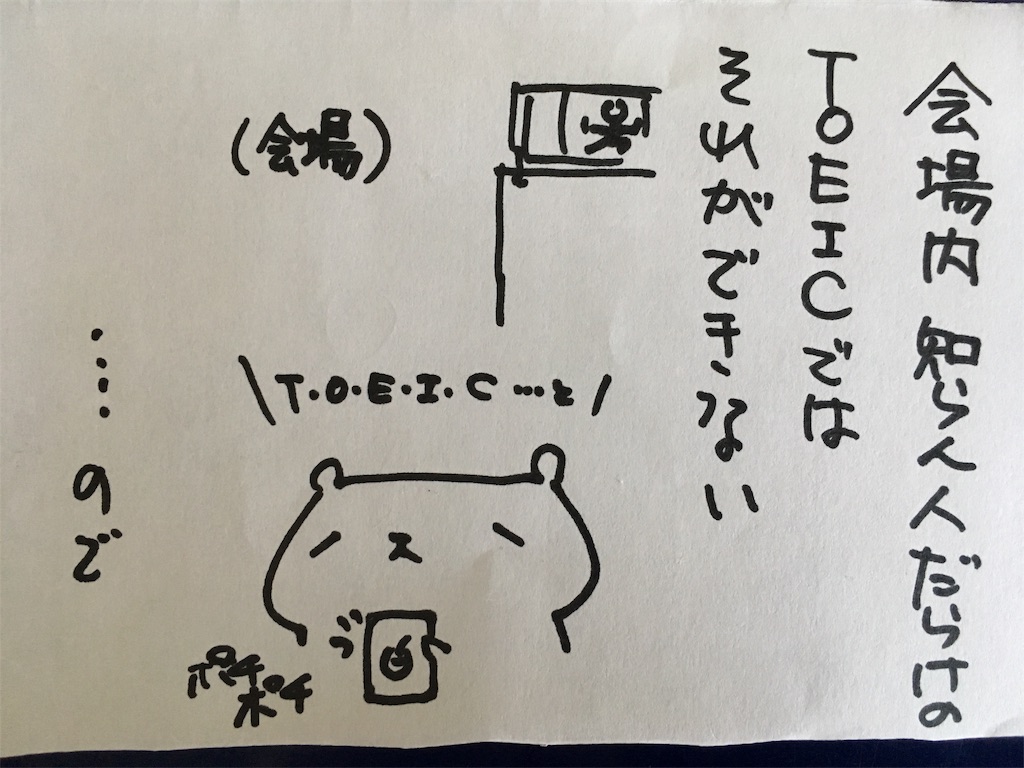 会場内 知らん人だらけの
TOEICでは
それができない
(会場)
\T.O.E.I.C…と/
ポチ
ポチ
……ので